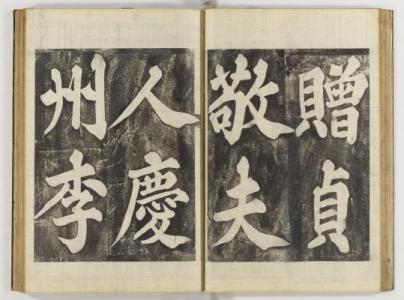 贈貞
敬夫
人慶
州李